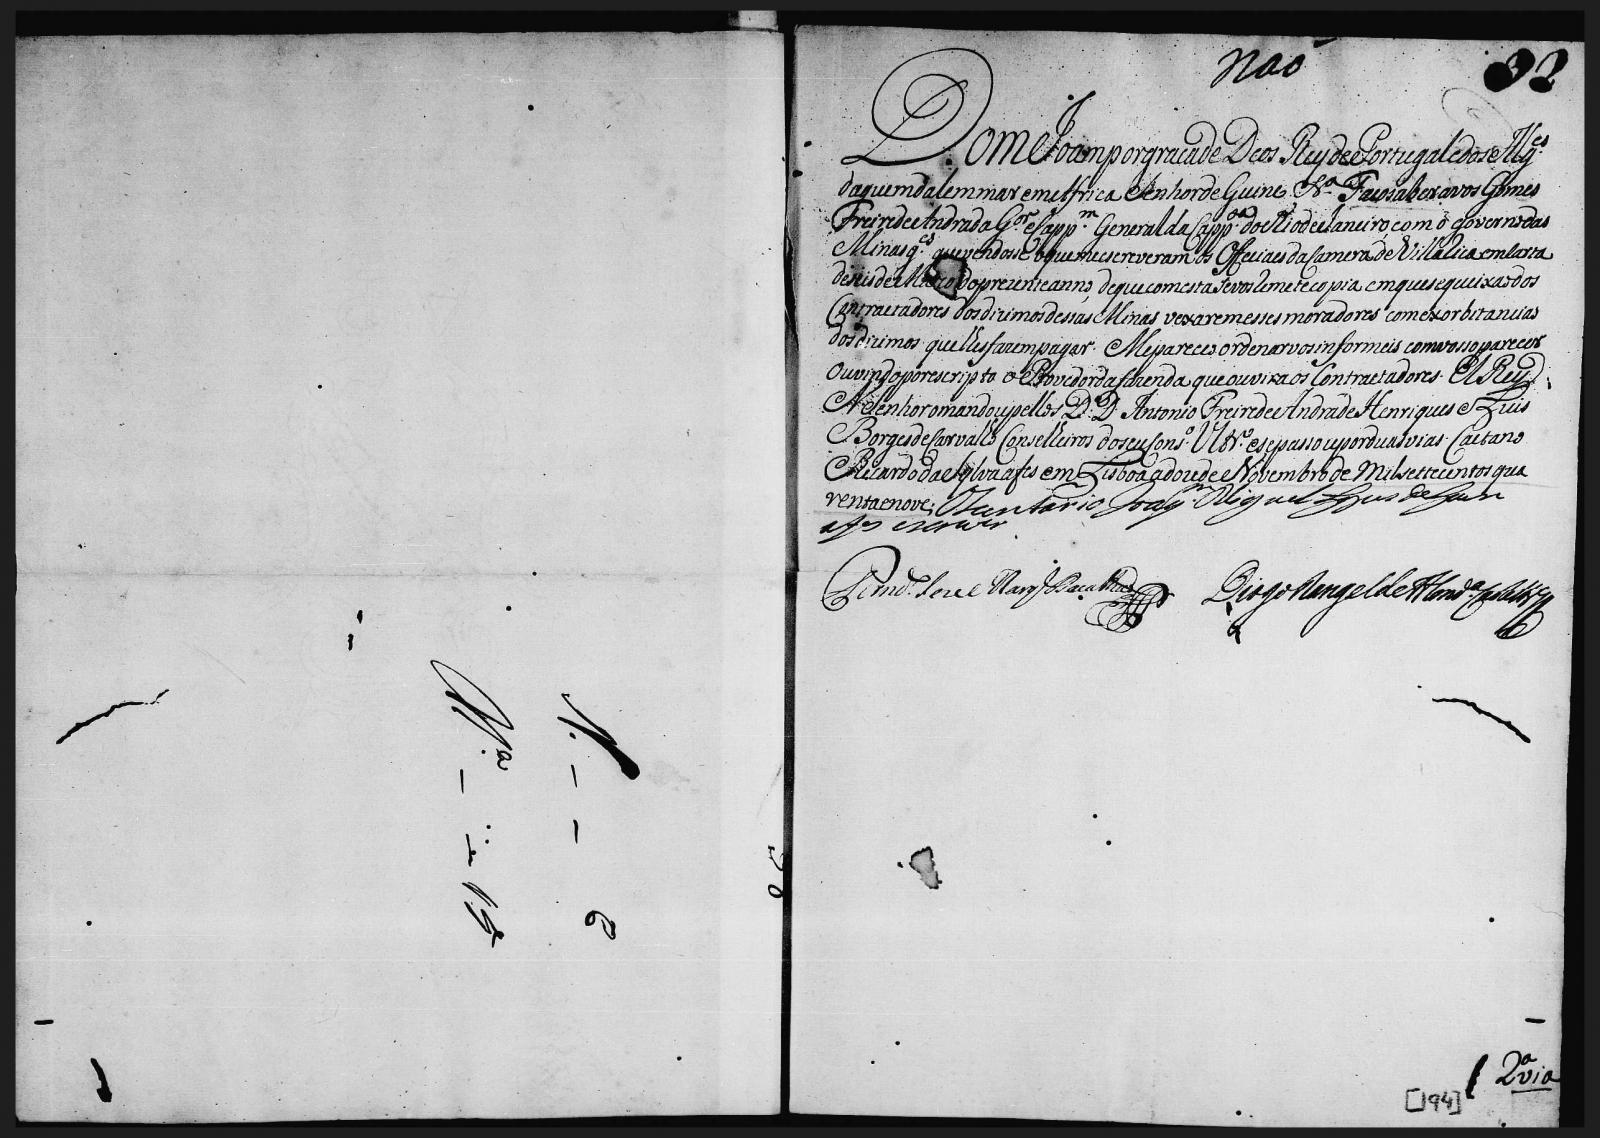 Naõ
32
Dom Joam por graça de Deos Rey de Portugal e dos Alg.es
daquem dalem mar em Africa Senhor de Guine &.a Faço saber a vos Gomes
Freire de Andrada G.or e Capp.m General da Capp.nia do Rio de Janeiro, com o governo das
Minas g.es que vendosse o que me escreveram os Officiaes da Camera de Villa Rica em carta
de seis de Março do prezente anno de que com esta se vos Remete copia em que se queixaõ dos
Contractadores dos dizimos dessas Minas vexarem esses moradores com exorbitancias
dos dizimos que lhes fazem pagar. Me pareceo ordenarvos informeis com vosso parecer
ouvindo por escripto o Provedor da fazenda que ouvira os Contractadores. El Rey
N. Senhor o mandou pellos D.D. Antonio Freire de Andrade Henriques e Luis
Borges de Carvalho Conselheiros do seu Cons.o Ultr.o e se passou por duas vias. Caetano
Ricardo da Sylva a fes em Lisboa a doze de Novembro de Mil sette centos qua
renta e nove; O Secretario Joaq.m Miguel Lopes de
a fes escrever
Diogo Rangel de Almd.a
N. - - 6
V.a
2.a via
[194]